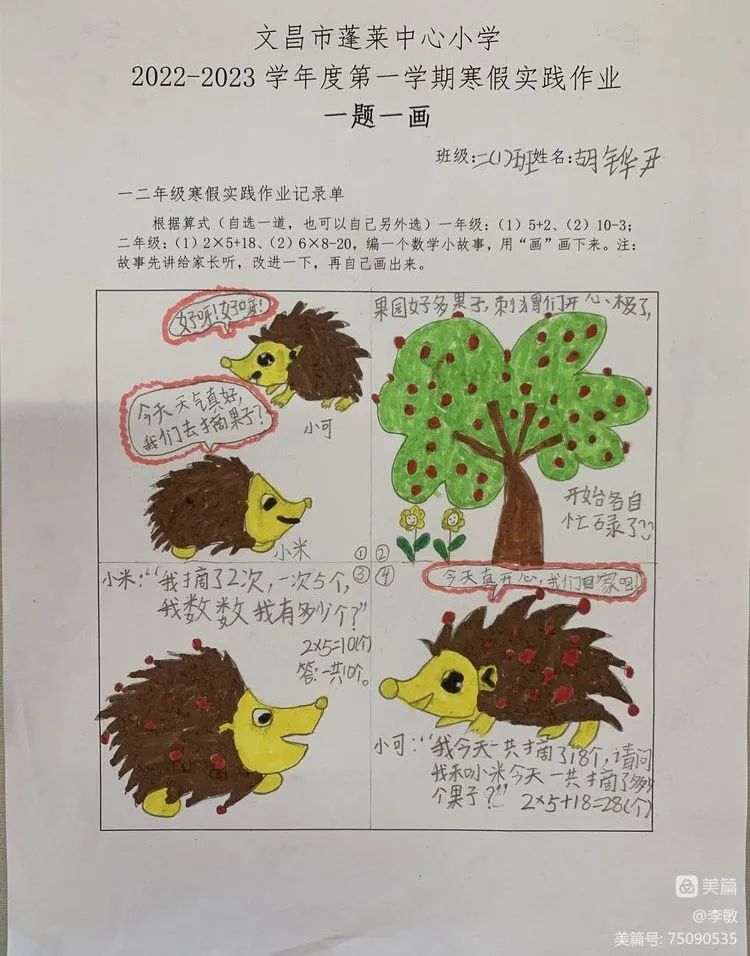 文昌市蓬莱中心小学
2022-2023 学年度第一学期寒假实践作业
一题一画
班级:二(1)班姓名:胡铧尹
一二年级寒假实践作业记录单
根据算式（自选一道，也可以自己另外选）一年级:（1）5+2、（2）10-3；
二年级:（1）2×5+18、（2）6×8-20，编一个数学小故事，用“画”画下来。注：
故事先讲给家长听，改进一下，再自己画出来。
好呀!好呀!
今天天气真好,
我们去摘果子?
小可
小米
①
果园好多果子,刺猬们开心极了,
开始各自
忙碌了
②
③
小米:“我摘了2次,一次5个,
我数数我有多少个?”
2×5=10(个)
答:一共10个。
④
今天真开心,我们回家吧!
小可:“我今天一共摘了18个,请问
我和小米今天一共摘了多少
个果子?”
2×5+18=28(个)
美篇
@李敏
美篇号: 75090535